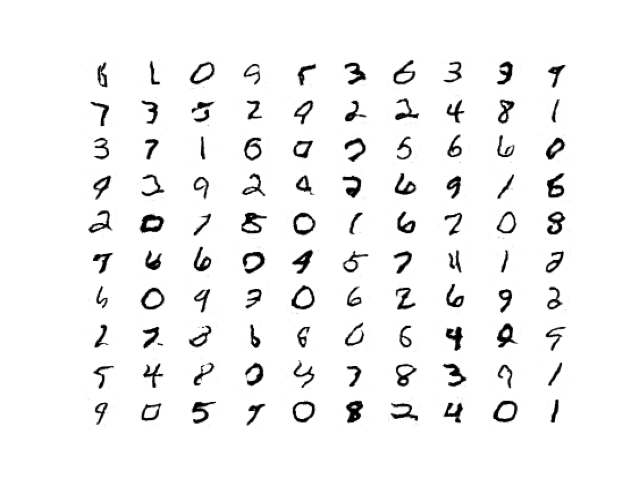 1 0 9 5 3 6 3 9 9
7 3 5 2 9 2 2 4 8 1
3 7 1 6 0 7 5 6 6 0
9 3 9 2 4 2 6 9 1 8
2 0 7 8 0 1 6 7 0 8
7 6 6 0 9 5 7 4 1 2
6 0 9 3 0 6 2 6 9 2
2 7 8 6 6 0 6 4 9 5
5 4 8 0 4 7 8 3 7 1
9 0 5 9 0 8 2 4 0 1